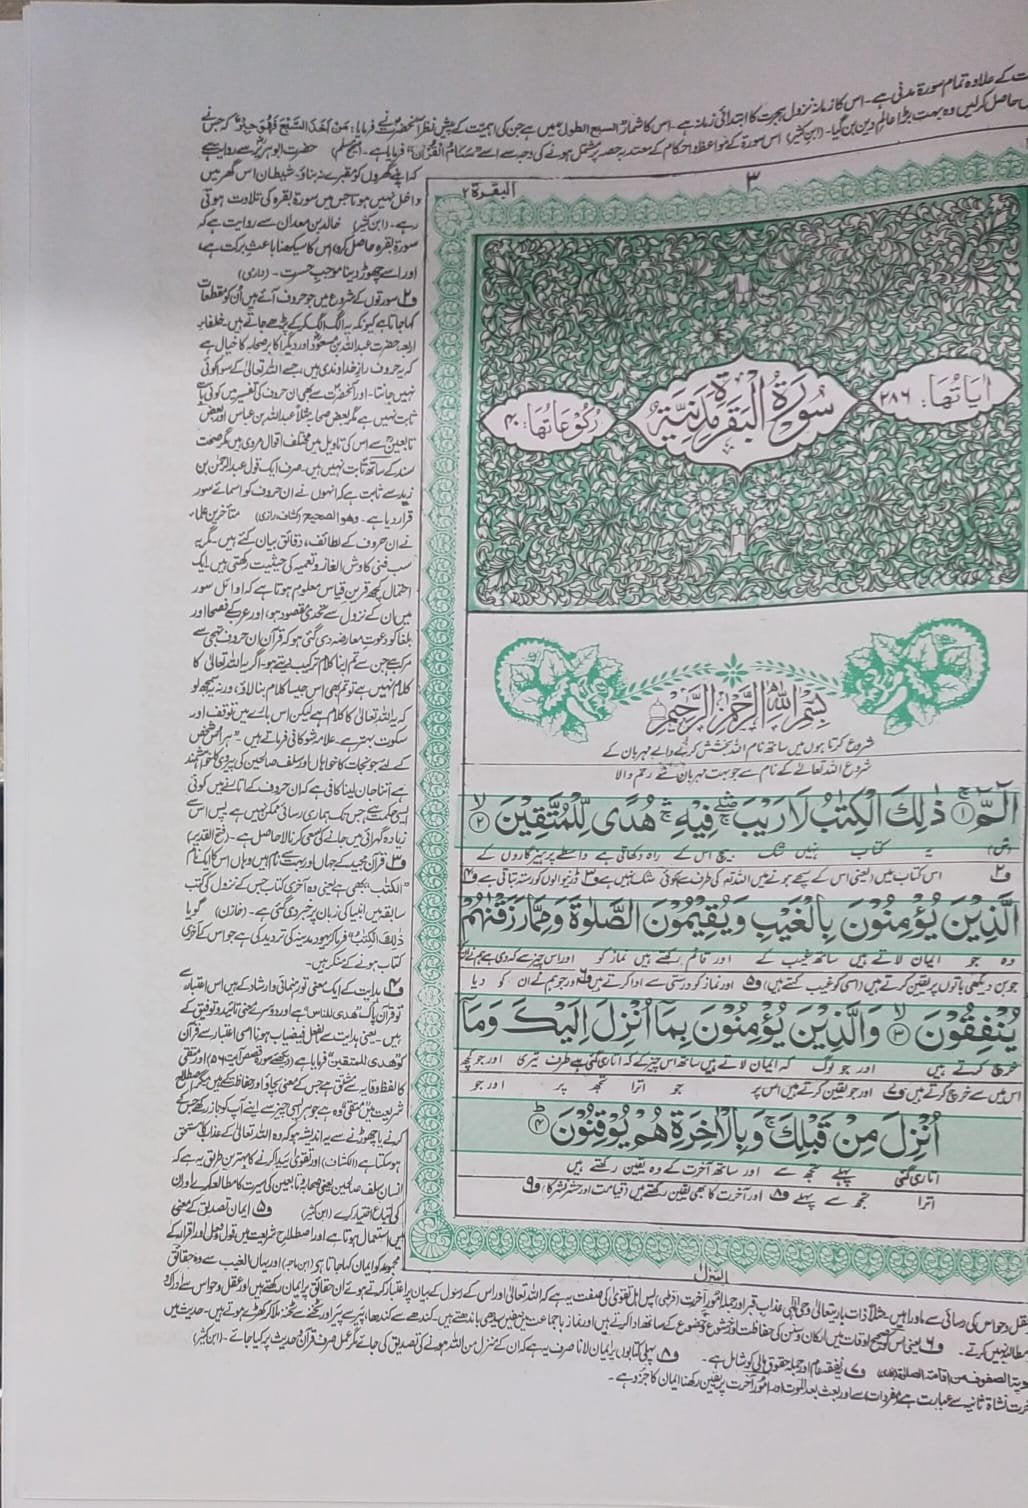 ت کے علاوہ تمام سورۃ مدنی ہے۔ اس کا زمانہ نزول ہجرت کا ابتدائی زمانہ ہے۔ اس کا شمار السبع الطول میں ہے جن کی اہمیت کے پیش نظر آنحضرت نے فرمایا: مَنْ اَخَذَ السَّبْعَ فَهُوَ حِبْرٌ کہ جس نے
حاصل کرلیں وہ بہت بڑا عالم دین بن گیا۔ (ابن کثیر) اس سورۃ کے مواعظ و احکام کے معتدبہ حصہ پر مشتمل ہونے کی وجہ سے اسے "سَنَامُ الْقُرْآن" فرمایا ہے۔ حضرت ابوہریرہ سے روایت ہے
کہ اپنے گھروں کو مقبرے نہ بناؤ۔ شیطان اس گھر میں
داخل نہیں ہوتا جس میں سورۃ بقرہ کی تلاوت ہوتی
رہے۔ (ابن کثیر) خالد بن معدان سے روایت ہے کہ
سورۃ بقرہ حاصل کرو اس کا سیکھنا باعث برکت ہے،
اور اسے چھوڑ دینا موجب حسرت۔ (دارمی)
ف۲ سورتوں کے شروع میں جو حروف آئے ہیں اُن کو مقطعات
کہا جاتا ہے کیونکہ یہ الگ الگ کرکے پڑھے جاتے ہیں۔ خلفاء
اربعہ حضرت عبداللہ بن مسعود اور دیگر اکابر صحابہ کا خیال ہے
کہ یہ حروف راز خداوندی ہیں، جسے اللہ تعالیٰ کے سوا کوئی
نہیں جانتا۔ اور آنحضرت سے بھی ان حروف کی تفسیر میں کوئی بات
ثابت نہیں ہے مگر بعض صحابہ مثلاً عبداللہ بن عباس اور بعض
تابعین سے اس کی تاویل میں مختلف اقوال مروی ہیں مگر صحت
سند کے ساتھ ثابت نہیں ہیں۔ صرف ایک قول عبدالرحمٰن بن
زید سے ثابت ہے کہ انہوں نے ان حروف کو اسمائے سور
قرار دیا ہے۔ وھو الصحیح (کشاف، رازی) متاخرین علماء
نے ان حروف کے لطائف، دقائق بیان کئے ہیں۔ مگر یہ
سب فنی کاوش الغاز و تعمیہ کی حیثیت رکھتی ہیں۔ ایک
احتمال کچھ قرین قیاس معلوم ہوتا ہے کہ اوائل سور
میں ان کے نزول سے تحدی مقصود ہو، اور عرب کے فصحا اور
بلغا کو دعوت معارضہ دی گئی ہو کہ قرآن ان حروف تہجی سے
مرکب ہے جن سے تم اپنا کلام ترکیب دیتے ہو۔ اگر یہ اللہ تعالیٰ کا
کلام نہیں ہے تو تم بھی اس جیسا کلام بنا لاؤ، ورنہ سمجھ لو
کہ یہ اللہ تعالیٰ کا کلام ہے لیکن اس بارے میں توقف اور
سکوت بہتر ہے۔ علامہ شوکانی فرماتے ہیں۔ "ہر اس شخص
کے لئے جو نجات کا خواہاں اور سلف صالحین کی پیروی کا خواہشمند
ہے اتنا جان لینا کافی ہے کہ ان حروف کے اتارنے میں کوئی
ایسی حکمت ہے جس تک ہماری رسائی ممکن نہیں ہے پس اس سے
زیادہ گہرائی میں جانے کی سعی کرنا لاحاصل ہے۔ (فتح القدیر)
ف۳ قرآن مجید کے جہاں اور بہت سے نام ہیں وہاں اس کا ایک نام
"الکتٰب" بھی ہے یعنی وہ آخری کتاب جس کے نزول کی کتب
سابقہ میں انبیا کی زبان پر خبر دی گئی ہے۔ (خازن) گویا
ذٰلِكَ الْكِتٰبُ فرما کر یہود مدینہ کی تردید کی ہے جو اس کے آخری
کتاب ہونے کے منکر ہیں۔
ف۴ ہدایت کے ایک معنی تو رہنمائی و ارشاد کے ہیں اس اعتبار سے
تو قرآن پاک "ھدی للناس" ہے اور دوسرے معنی تائید و توفیق کے
ہیں۔ یعنی ہدایت سے بفعل فیضیاب ہونا اسی اعتبار سے قرآن
کو "ھدی للمتقین" فرمایا ہے (دیکھئے سورۃ قصص آیت ۵۶) اور تقی
کا لفظ وقایہ سے مشتق ہے جس کے معنی بچاؤ اور حفاظت کے ہیں مگر اصطلاح
شریعت میں "متقی" وہ ہے جو ہر ایسی چیز سے اپنے آپ کو باز رکھے جس کے
کرنے یا چھوڑنے سے یہ اندیشہ ہو کہ وہ اللہ تعالیٰ کے عذاب کا مستحق
ہو سکتا ہے (الکشاف) اور تقویٰ پیدا کرنے کا بہترین طریق یہ ہے کہ
انسان سلف صالحین یعنی صحابہ و تابعین کی سیرت کا مطالعہ کرے اور ان
کی اتباع اختیار کرے (ابن کثیر) ف۵ ایمان تصدیق کے معنی
میں استعمال ہوتا ہے اور اصطلاح شریعت میں قول و فعل اور اقرار کے
مجموعہ کو ایمان کہا جاتا ہے (ابن ماجہ) اور یہاں الغیب سے وہ حقائق
البقرة ۲
۳
اٰیَاتُهَا: ۲۸۶
سُوْرَةُ الْبَقَرَةِ مَدَنِيَّةٌ
رُكُوْعَاتُهَا: ۴۰
بِسْمِ اللّٰهِ الرَّحْمٰنِ الرَّحِيْمِ
شروع کرتا ہوں میں ساتھ نام اللہ بخشش کرنے والے مہربان کے
شروع اللہ تعالےٰ کے نام سے جو بہت مہربان ہے رحم والا
الٓمّٓ ۚ ۝۱ ذٰلِكَ الْكِتٰبُ لَا رَيْبَ ۛۖ فِيْهِ ۛۚ هُدًى لِّلْمُتَّقِيْنَ ۙ ۝۲
یہ کتاب نہیں شک بیچ اس کے راہ دکھاتی ہے واسطے پرہیزگاروں کے
ف۲ اس کتاب میں (یعنی اس کے سچے ہونے میں اللہ تم کی طرف سے) کوئی شک نہیں ہے ف۳ ڈرنیوالوں کو رستہ بتاتی ہے ف۴
الَّذِيْنَ يُؤْمِنُوْنَ بِالْغَيْبِ وَيُقِيْمُوْنَ الصَّلٰوةَ وَمِمَّا رَزَقْنٰهُمْ
وہ جو ایمان لاتے ہیں ساتھ غیب کے اور قائم رکھتے ہیں نماز کو اور اس چیز سے کہ دی ہے ہم نے ان کو
جو بن دیکھی باتوں پر یقین کرتے ہیں (اسی کو غیب کہتے ہیں) ف۵ اور نماز کو درستی سے ادا کرتے ہیں ف۶ اور جو ہم نے ان کو دیا
يُنْفِقُوْنَ ۙ ۝۳ وَالَّذِيْنَ يُؤْمِنُوْنَ بِمَآ اُنْزِلَ اِلَيْكَ وَمَآ
خرچ کرتے ہیں اور جو لوگ کہ ایمان لاتے ہیں ساتھ اس چیز کے کہ اتاری گئی ہے طرف تیری اور جو کچھ
اس میں سے خرچ کرتے ہیں ف۷ اور جو یقین کرتے ہیں اس پر جو اترا تجھ پر اور جو
اُنْزِلَ مِنْ قَبْلِكَ ۚ وَبِالْاٰخِرَةِ هُمْ يُوْقِنُوْنَ ۭ ۝۴
اتاری گئی پہلے تجھ سے اور ساتھ آخرت کے وہ یقین رکھتے ہیں
اترا تجھ سے پہلے ف۸ اور آخرت کا بھی یقین رکھتے ہیں (قیامت اور حشر نشر کا) ف۹
المنزل
عقل و حواس کی رسائی سے ماوراء ہیں۔ مثلاً ذات باری تعالیٰ وحی الٰہی عذاب قبر اور جملہ امور آخرت (قرطبی) پس اہل تقویٰ کی صفت یہ ہے کہ اللہ تعالیٰ اور اس کے رسول کے بیان پر اعتبار کرتے ہوئے ان حقائق پر ایمان رکھتے ہیں اور عقل و حواس سے دراک
مطالبہ نہیں کرتے۔ ف۶ یعنی اس کو صحیح اوقات میں ارکان و سنن کی حفاظت اور خشوع خضوع کے ساتھ ادا کرتے ہیں اور نماز باجماعت میں صفیں سیدھی باندھتے ہیں کندھے سے کندھا، پیر سے پیر اور ٹخنے سے ٹخنہ ملا کر کھڑے ہوتے ہیں۔ حدیث میں
الصفوف من اقامۃ الصلاۃ ف۷ یہ نفقہ عام اور جملہ حقوق مالی کو شامل ہے۔ ف۸ پہلی کتابوں پر ایمان لانا صرف یہ ہے کہ ان کے منزل من اللہ ہونے کی تصدیق کی جائے مگر عمل صرف قرآن و حدیث پر کیا جائے۔ (ابن کثیر)
نشاۃ ثانیہ سے عبارت ہے (مفردات) سے اور بعث بعد الموت اور امور آخرت پر یقین رکھنا ایمان کا جزو ہے۔